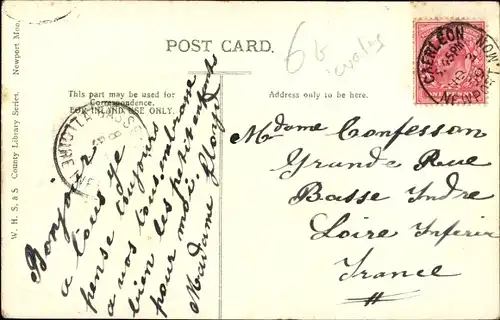 POST CARD.
This part may be used for
Correspondence.
FOR INLAND USE ONLY.
Address only to be here.
W. H. S. & S County Library Series. Newport Mon.
6
CAERLEON
Bonjour
a tous je
pense toujours
a vous tous embrasse
bien les petit enfants
pour moi
Madame Floyd
Mdame Confesson
Grande Rue
Basse Indre
Loire Inferir
France